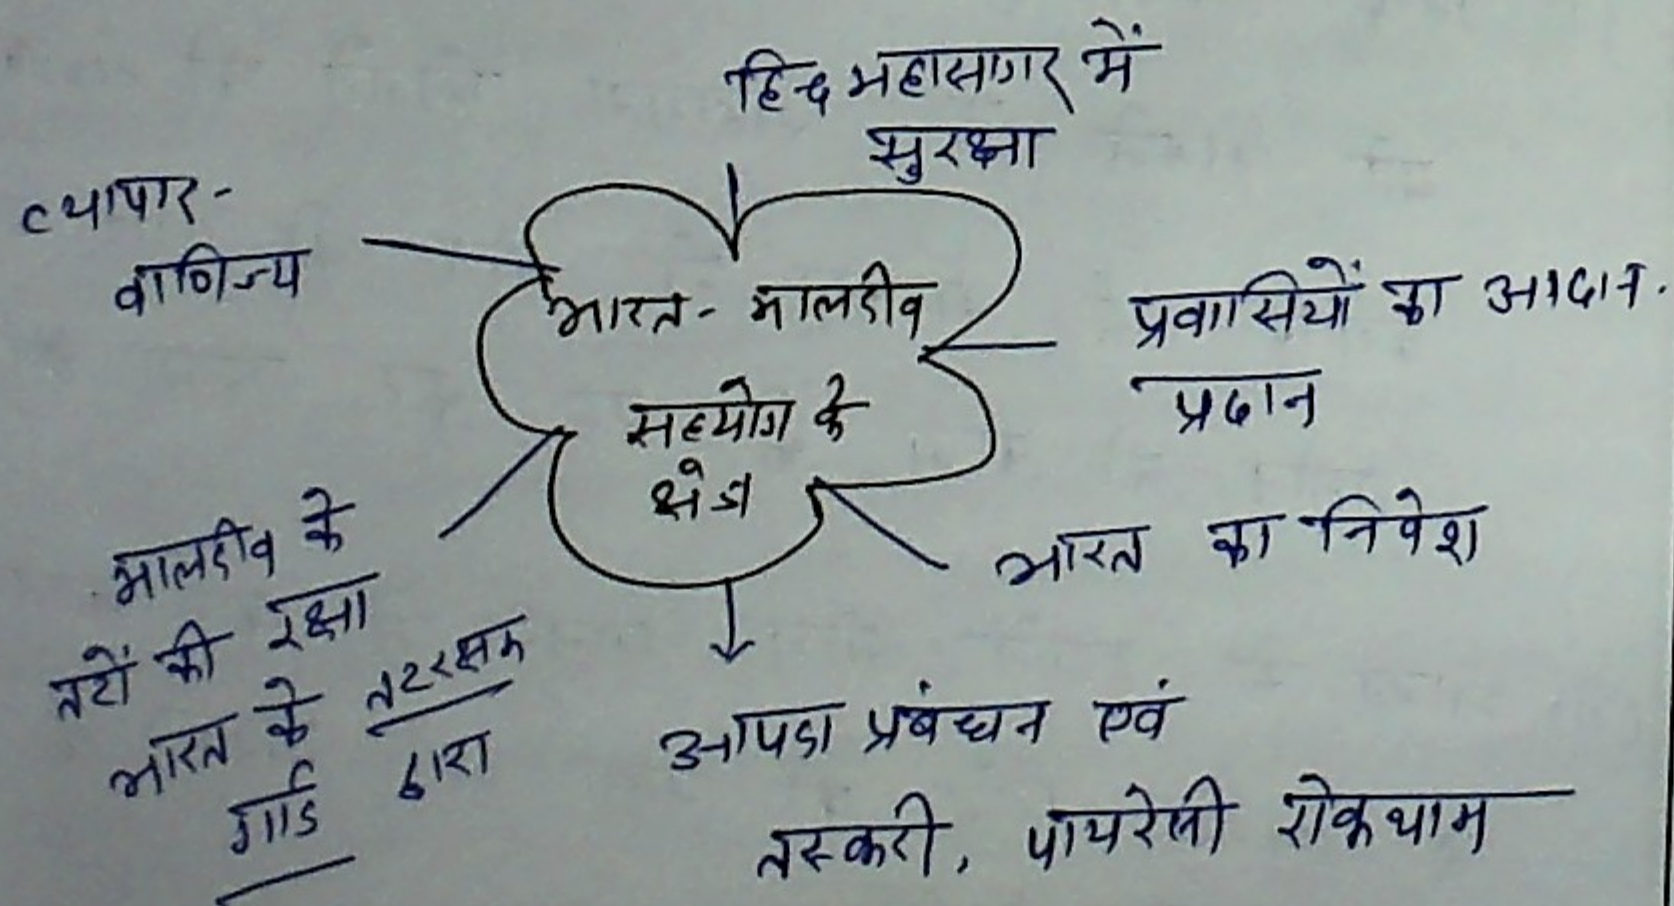 हिन्द महासागर में
सुरक्षा
व्यापार-
वाणिज्य
भारत- मालदीव
सहयोग के
क्षेत्र
प्रवासियों का आदान-
प्रदान
भारत का निवेश
मालदीव के
तटों की रक्षा
भारत के तटरक्षक
गार्ड द्वारा
आपदा प्रबंधन एवं
तस्करी, पायरेसी रोकथाम